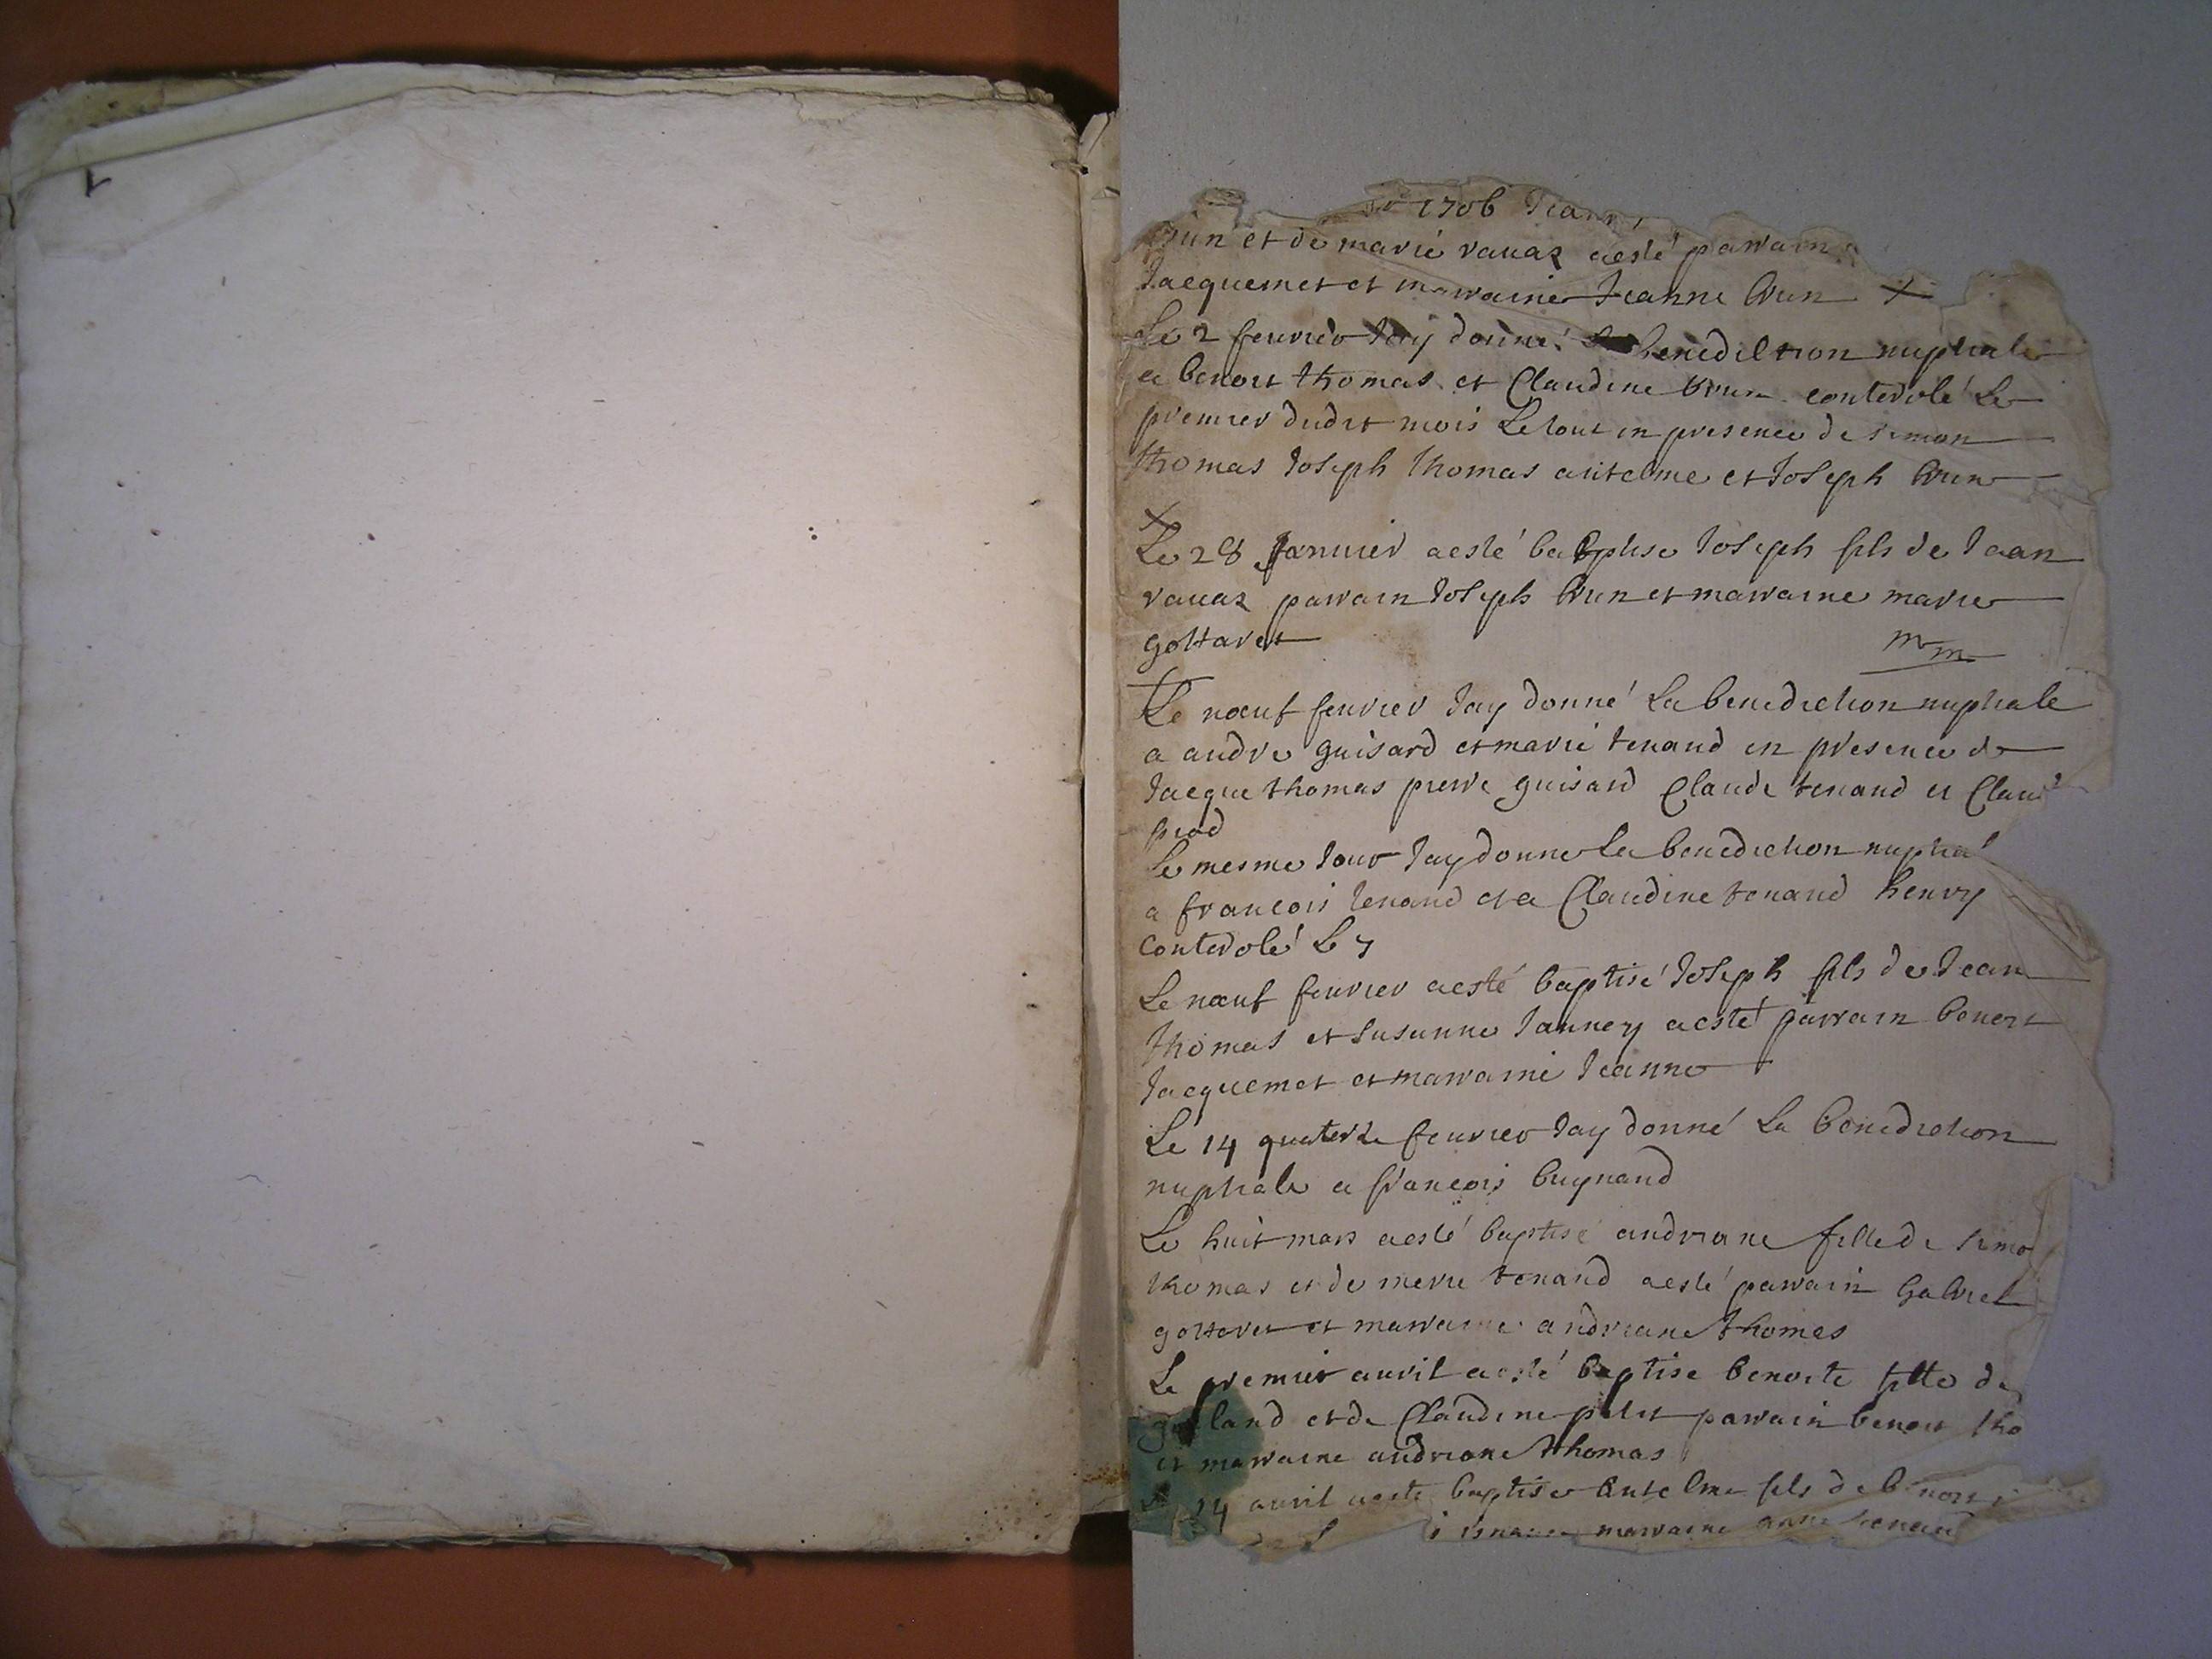 1706 Jeann
brun et de marie vauaz aesté parrain
Jacquemet et marraine Jeanne brun X
Le 2 feurier Jay donné benediction nuptiale
a benoit thomas et Claudine brun controlé Le
premier dudit mois Le tout en presence de simon
thomas Joseph thomas antelme et Joseph brun
X
Le 28 Januier aesté baptise Joseph fils de Jean
vauaz parrain Joseph brun et marraine marie
gottaret
Le noeuf feurier Jay donné La benediction nuptiale
a andre guisard et marie tenand en presence de
Jacque thomas pierre guisard Claude tenand et Claud
prad
Le mesme Jour Jay donne La benediction nuptial
a francois tenand et a Claudine tenand henry
Controlé Le 7
Le noeuf feurier aesté baptisé Joseph fils de Jean
thomas et Susanne Janney aesté parrain benoit
Jacquemet et marraine Jeanne
Le 14 quatorze feurier Jay donné La benediction
nuptiale a francois bugnand
Le huit mars aesté baptisé andriane fille de simo
thomas et de marie tenand aesté parrain gabriel
gottaret et marraine andriane thomas
Le premier auril aesté baptise benoite fille de
galland et de Claudine petit parrain benoit tho
et marraine andriane thomas
14 auril aesté baptise antelme fils de benoit
marraine anne tenand